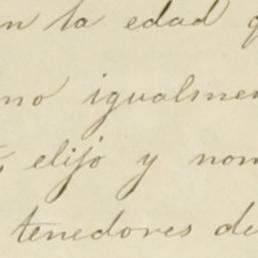 en la edad q
mo igualmen
, elijo y nom
tenedores de